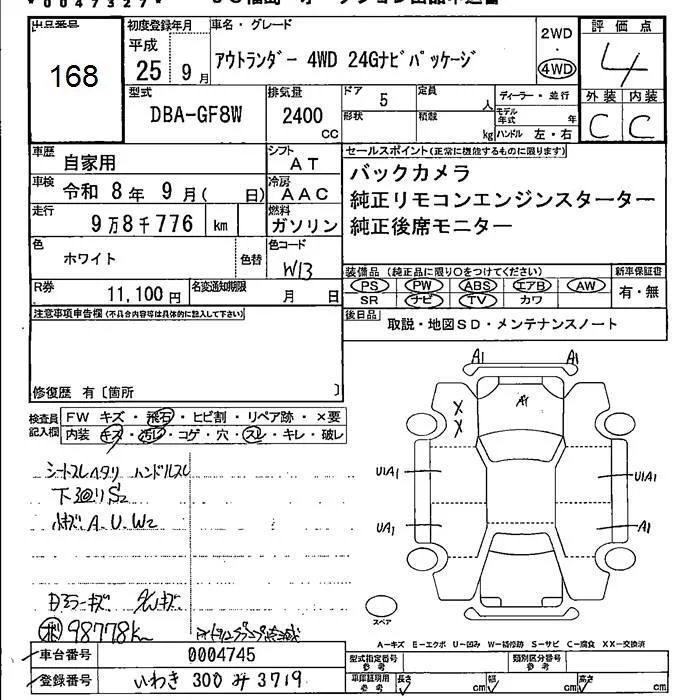 *0047327*
出品番号
168
初度登録年月
平成
25 9月
車名・グレード
アウトランダー 4WD 24Gナビパッケージ
2WD
・
4WD
評価点
4
外装 内装
C C
型式
DBA-GF8W
排気量
2400
CC
ドア 5
定員
人
形状
積載
kg
ディーラー・並行
モデル年式 年
ハンドル 左・右
車歴
自家用
シフト
AT
車検
令和 8年 9月( 日)
冷房
AAC
走行
9万8千776 km
燃料
ガソリン
色
ホワイト
色替
色コード
W13
R券
11,100円
名変通知期限
月 日
セールスポイント(正常に機能するものに限ります)
バックカメラ
純正リモコンエンジンスターター
純正後席モニター
装備品(純正品に限り○をつけてください)
新車保証書
PS PW ABS エアB AW
SR ナビ TV カワ
有・無
後日品
取説・地図SD・メンテナンスノート
注意事項申告欄(不具合内容等は具体的に記入して下さい)
修復歴 有〔箇所 〕
検査員
記入欄
FW キズ・飛石・ヒビ割・リペア跡・×要
内装 キズ・汚れ・コゲ・穴・スレ・キレ・破レ
シートスレヘタリ ハンドルスレ
下廻りS2
A.U.W2
98778k
A1 A1
A1
X
X
U1A1 U1A1
UA1 A1
スペア
A-キズ E-エクボ U-凹み W-補修跡 S-サビ C-腐食 XX-交換済
車台番号
0004745
登録番号
いわき 300 み 3719
型式指定番号
参考
類別区分番号
参考
車庫証明用
参考
長さ cm 幅 cm 高さ cm